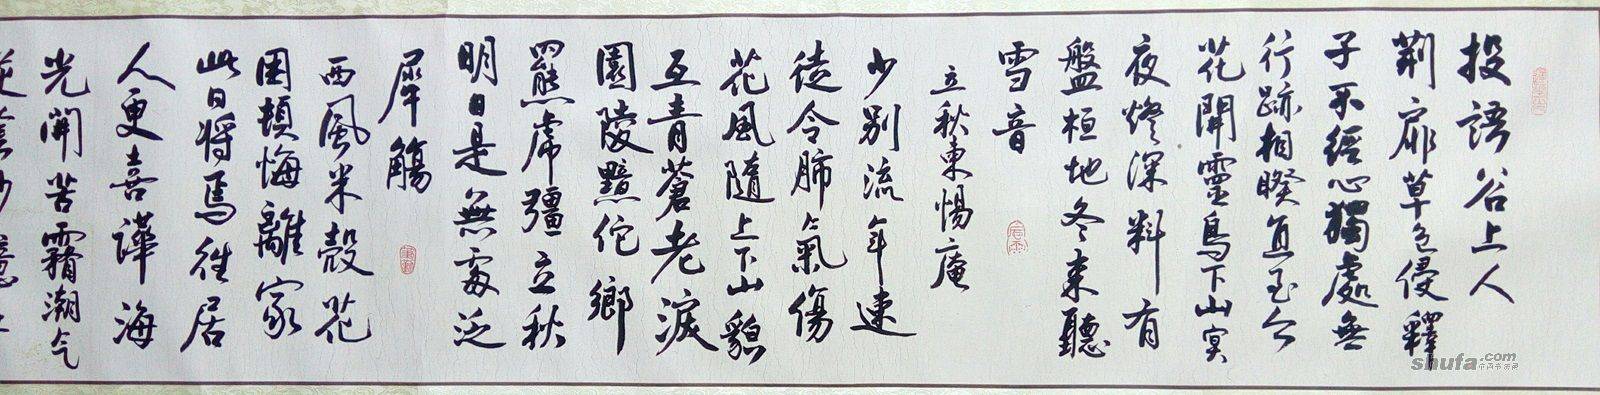 投語谷上人
荆扉草色侵釋
子不經心獨處無
行跡相睽直至今
花開靈鳥下山冥
夜燈深料有
盤桓地冬来聽
雪音
立秋東惕庵
少别流年速
徒令肺氣傷
花風隨上下山貌
互青蒼老淚
園陵黯佗鄉
羆虎彊立秋
明日是無處泛
犀觴
西風米殼花
困頓悔離家
此日将焉往居
人更喜譁海
光開苦霧潮气
shufa.com